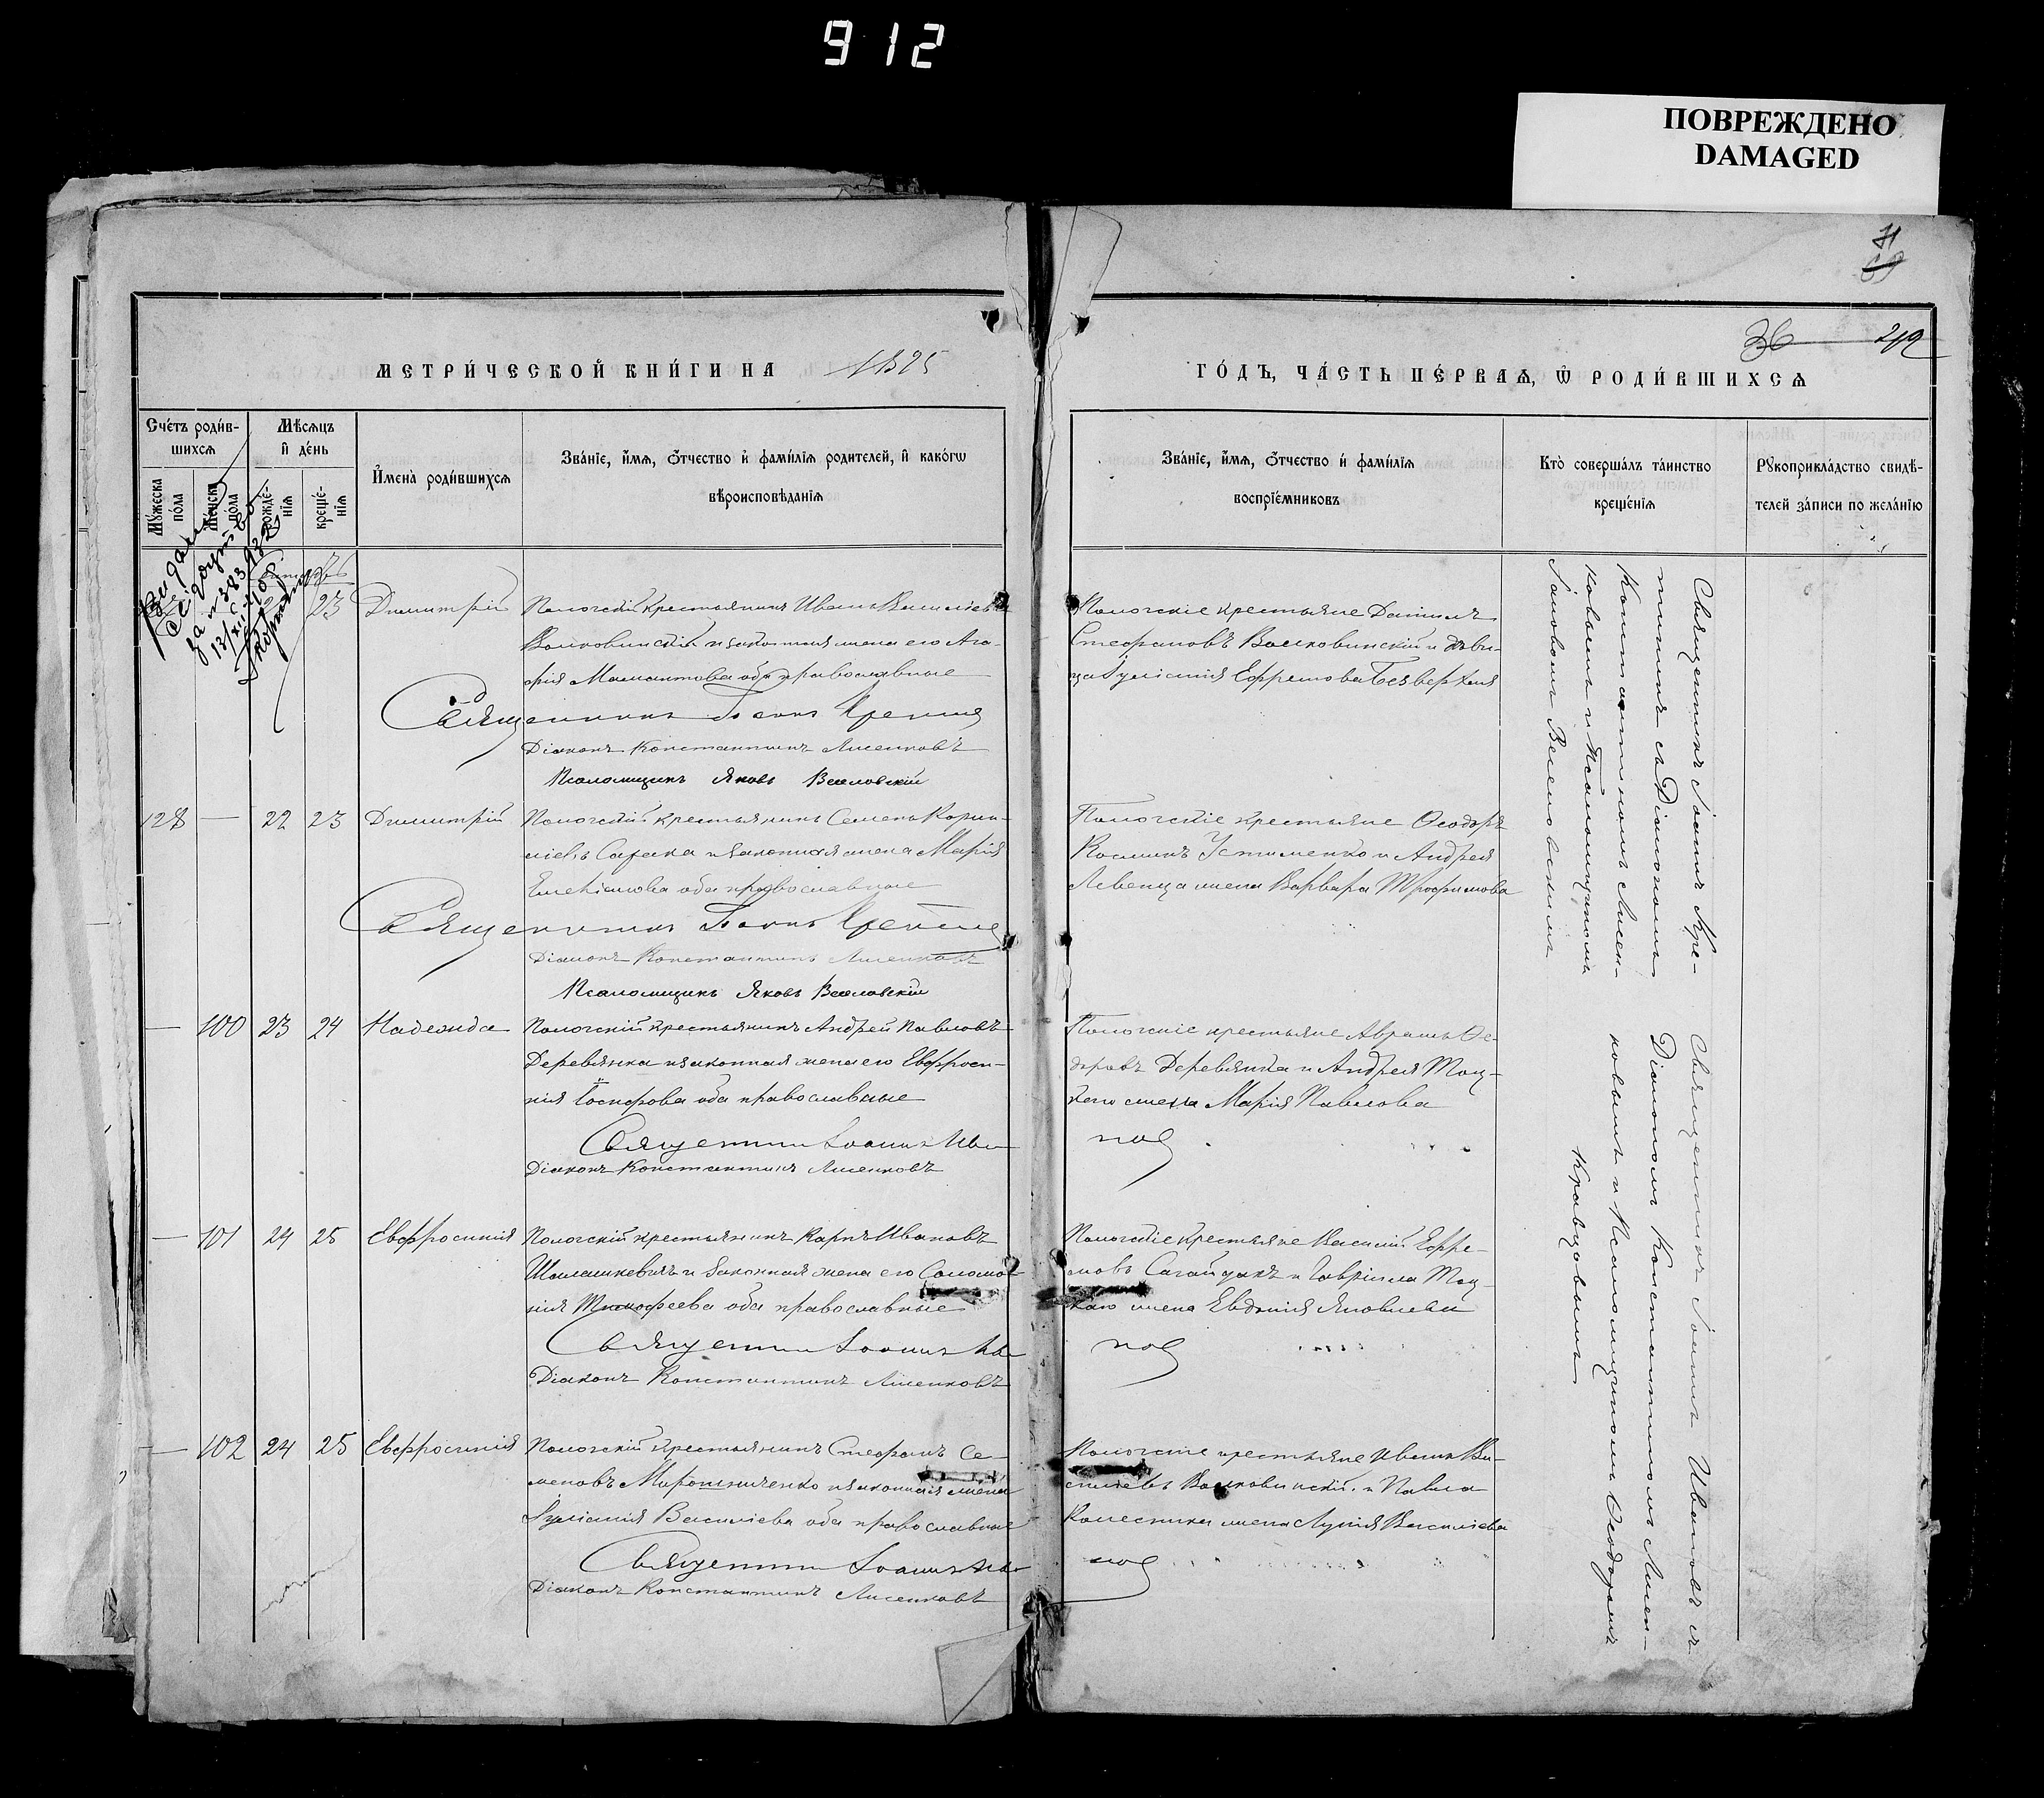 912
ПОВРЕЖДЕНО
DAMAGED
71
69
МЕТРИ́ЧЕСКОЙ КНИ́ГИ НА 1895
36 212
ГО́ДЪ, ЧА́СТЬ ПЕ́РВАѦ, Ѡ РОДИ́ВШИХСѦ
Сче́тъ роди́в-
шихсѧ
Мѣ́сѧцъ
и҆ де́нь
Му́жеска
по́ла
Же́нска
по́ла
рожде́-
нїѧ
креще́-
нїѧ
И҆мена̀ роди́вшихсѧ
Зва́нїе, и҆́мѧ, ѻ҆́тчество и҆ фами́лїѧ родителей, и҆ како́гѡ
вѣроисповѣ́данїѧ
Зва́нїе, и҆́мѧ, ѻ҆́тчество и҆ фами́лїѧ
воспрїе́мниковъ
Кто̀ соверша́лъ та́инство
креще́нїѧ
Рꙋкоприкла́дство свидѣ́-
телей за́писи по жела́нїю
23 Димитрій
Пологскій крестьянинъ Иванъ Васильевъ
Волковинскій и законная жена его Ага-
фія Мамантова оба православные
Священникъ Іоаннъ
Діаконъ Константинъ Лисенковъ
Псаломщикъ Яковъ Веселовскій
Пологскіе крестьяне Даніилъ
Стефановъ Волковинскій и дѣви-
ца Іуліанія Ефремова Безверхня
Священникъ Іоаннъ Кре-
съ Діакономъ
Константиномъ Лисен-
ковымъ и Псаломщикомъ
Яковомъ Веселовскимъ
128 — 22 23 Димитрій
Пологскій крестьянинъ Семенъ Корни-
ліевъ и законная жена Марія
оба православные
Священникъ Іоаннъ
Діаконъ Константинъ Лисенковъ
Псаломщикъ Яковъ Веселовскій
Пологскіе крестьяне Ѳеодоръ
Косминъ Устименко и Андрея
Левенца жена Варвара Трофимова
— 100 23 24 Надежда
Пологскій крестьянинъ Андрей Павловъ
Деревянка и законная жена его Евфроси-
нія Іосифова оба православные
Священник Іоаннъ Ива-
нов
Діаконъ Константинъ Лисенковъ
Пологскіе крестьяне Авраамъ Ѳе-
доровъ Деревянка и Андрея Тоц-
кого жена Марія Павлова
Священникъ Іоаннъ Ивановъ съ
Діакономъ Константиномъ Лисен-
ковымъ и Псаломщикомъ Ѳеодоромъ
Кравцовымъ
— 101 24 25 Евфросинія
Пологскій крестьянинъ Карпъ Ивановъ
и законная жена его Соломо-
нія Тимофеева оба православные
Священник Іоаннъ Ива-
нов
Діаконъ Константинъ Лисенковъ
Пологскіе крестьяне Василій Ефре-
мовъ Сагайдакъ и Гавріила Тоц-
каго жена Евдокія Яковлева
— 102 24 25 Евфросинія
Пологскій крестьянинъ Стефанъ Се-
меновъ Мирошниченко и законная жена
Іуліанія Васильева оба православные
Священник Іоаннъ Ива-
нов
Діаконъ Константинъ Лисенковъ
Пологскіе крестьяне Иванъ Ва-
сильевъ Волковинскій и Павла
Колесника жена Лукія Васильева